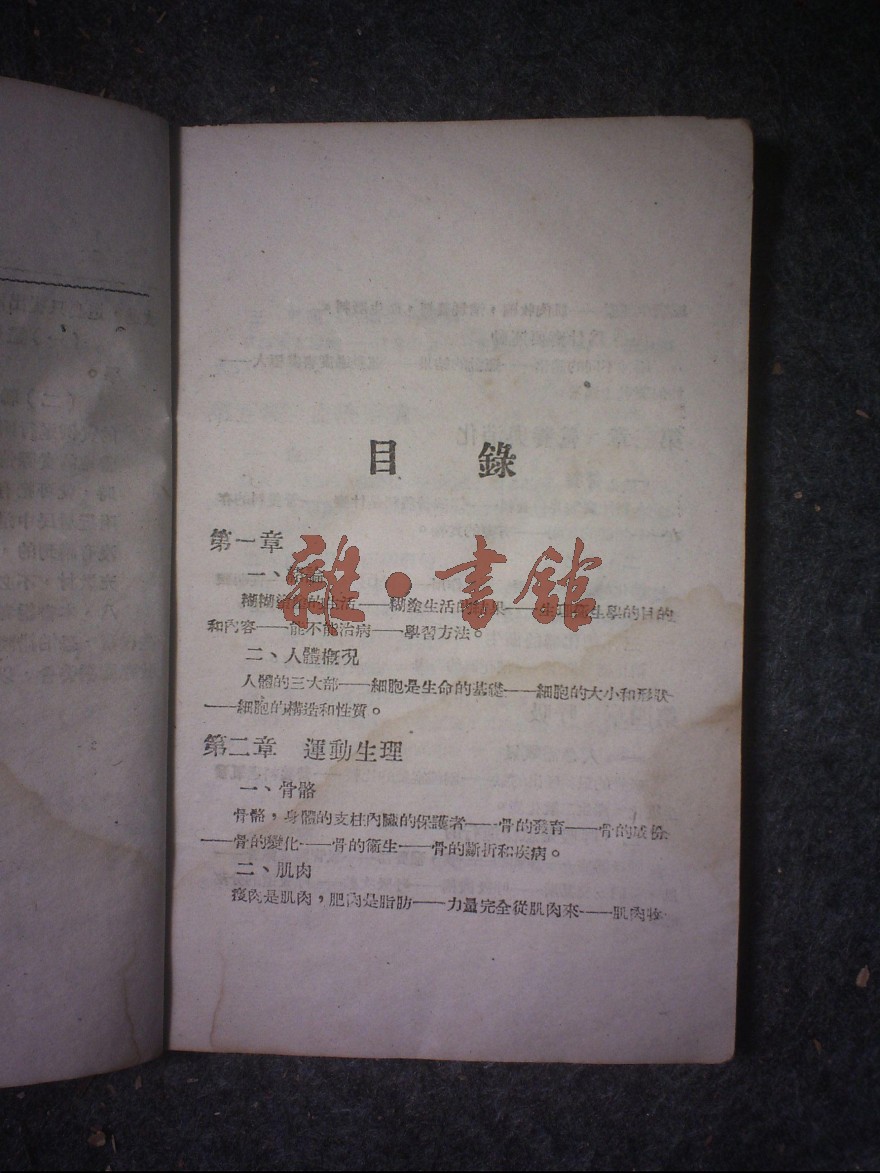 目 錄
第一章
一、
糊糊塗塗的生活——糊塗生活的結果——生理衞生學的目的
和內容——能不能治病——學習方法。
二、人體概況
人體的三大部——細胞是生命的基礎——細胞的大小和形狀
——細胞的構造和性質。
第二章 運動生理
一、骨骼
骨骼，身體的支柱內臟的保護者——骨的發育——骨的成份
——骨的變化——骨的衞生——骨的斷折和疾病。
二、肌肉
瘦肉是肌肉，肥肉是脂肪——力量完全從肌肉來——肌肉收
雜·書館